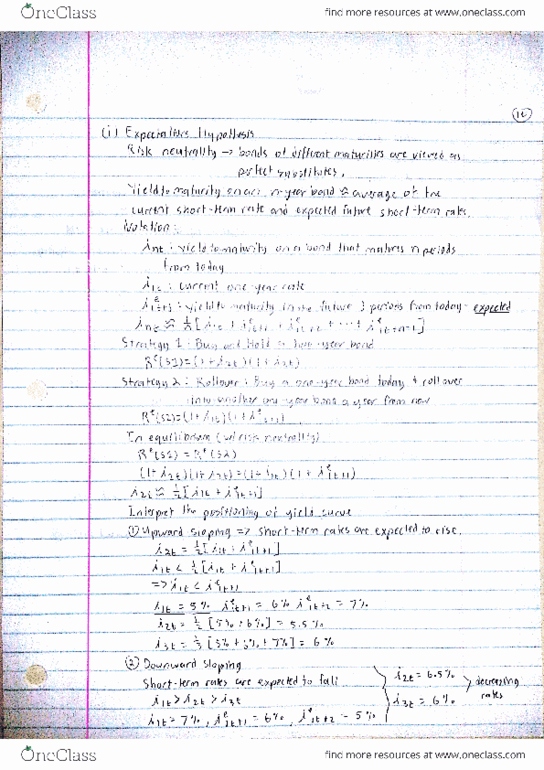 OneClass
find more resources at www.oneclass.com
(i) Expectations Hypothesis
Risk neutrality → bonds of different maturities are viewed as
perfect substitutes.
Yield to maturity on an n-year bond ≈ average of the
current short-term rate and expected future short-term rates.
Notation:
int : yield to maturity on a bond that matures n periods
from today
i1t : current one-year rate
: yield to maturity in the future periods from today - expected
int ≈ 1/n [i1t + i^e1t+1 + i^e1t+2 + ... + i^e1t+n-1]
Strategy 1: Buy and Hold a two-year bond
R^e(S1) = (1 + i2t)(1 + i2t)
Strategy 2: Rollover: Buy a one-year bond today & rollover
into another one-year bond a year from now
R^e(S2) = (1 + i1t)(1 + i^e1t+1)
In equilibrium (w/ risk neutrality)
R^e(S1) = R^e(S2)
(1 + i2t)(1 + i2t) = (1 + i1t)(1 + i^e1t+1)
i2t ≈ 1/2 [i1t + i^e1t+1]
Interpret the positioning of yield curve
① Upward slopping => short-term rates are expected to rise.
i2t = 1/2 [i1t + i^e1t+1]
i1t < 1/2 [i1t + i^e1t+1]
=> i1t < i^e1t+1
i1t = 5% i^e1t+1 = 6% i^e1t+2 = 7%
i2t = 1/2 [5% + 6%] = 5.5%
i3t = 1/3 [5% + 6% + 7%] = 6%
② Downward sloping
Short-term rates are expected to fall
i1t > i2t > i3t
i1t = 7%, i^e1t+1 = 6%, i^e1t+2 = 5%
i2t = 6.5%
i3t = 6%
decreasing
rates
OneClass
find more resources at www.oneclass.com